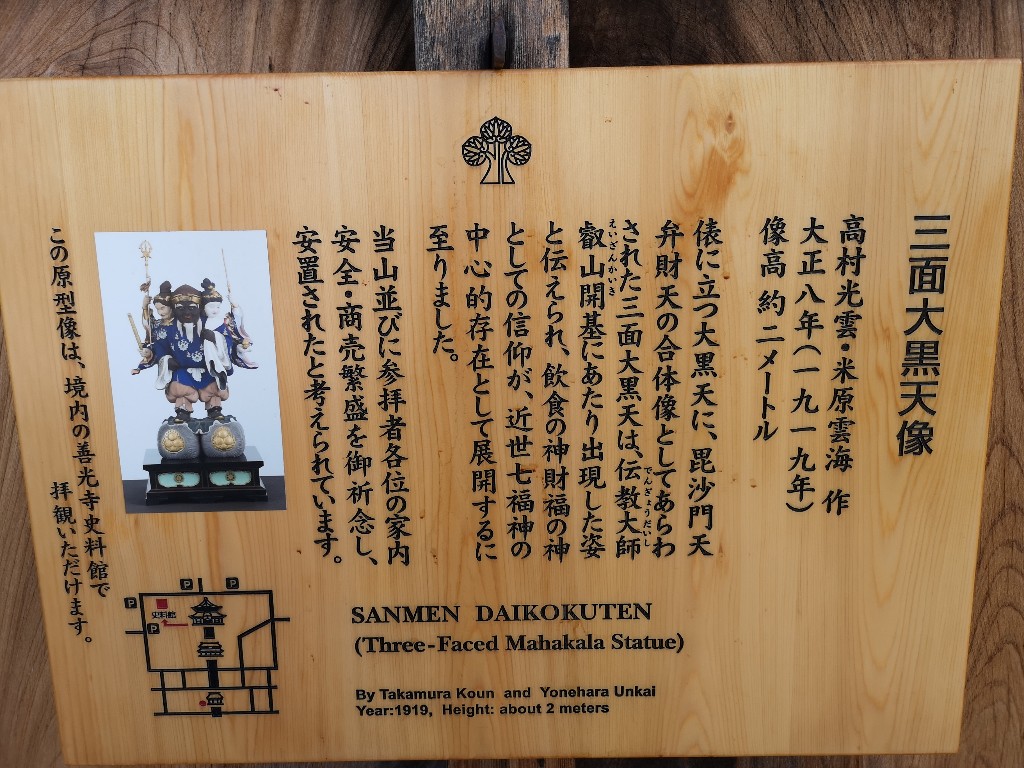 三面大黒天像
高村光雲・米原雲海 作
大正八年(一九一九年)
像高 約二メートル
俵に立つ大黒天に、毘沙門天
弁財天の合体像としてあらわ
された三面大黒天は、伝教大師
でんぎょうだいし
叡山開基にあたり出現した姿
えいざんかいき
と伝えられ、飲食の神財福の神
としての信仰が、近世七福神の
中心的存在として展開するに
至りました。
当山並びに参拝者各位の家内
安全・商売繁盛を御祈念し、
安置されたと考えられています。
この原型像は、境内の善光寺史料館で
拝観いただけます。
P
P
P
史料館
P
SANMEN DAIKOKUTEN
(Three-Faced Mahakala Statue)
By Takamura Koun and Yonehara Unkai
Year:1919, Height: about 2 meters